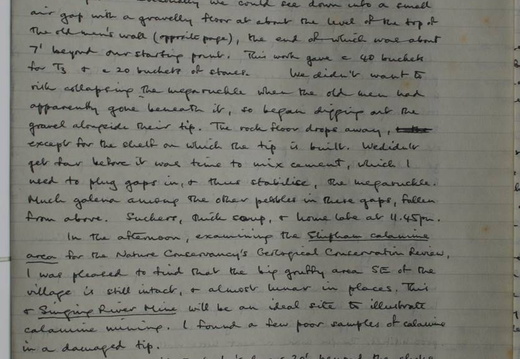 we could see down into a small
air gap with a gravelly floor at about the level of the top of
the old men's wall (opposite page), the end of which was about
7' beyond our starting point. This work gave c 40 buckets
for T3 & c 20 buckets of stones. We didn't want to
risk collapsing the megaruckle when the old men had
apparently gone beneath it, so began digging out the
gravel alongside their tip. The rock floor drops away,
except for the shelf on which the tip is built. We didn't
get far before it was time to mix cement, which I
need to plug gaps in, & thus stabilise, the megaruckle.
Much galena among the other pebbles in these gaps, fallen
from above. Suckers, thick soup, & home late at 11.45pm.
In the afternoon, examining the Shipham calamine
area for the Nature Conservancy's Geological Conservation Review,
I was pleased to find that the big gruffy area SE of the
village is still intact, & almost lunar in places. This
& Singing River Mine will be an ideal site to illustrate
calamine mining. I found a few poor samples of calamine
in a damaged tip.